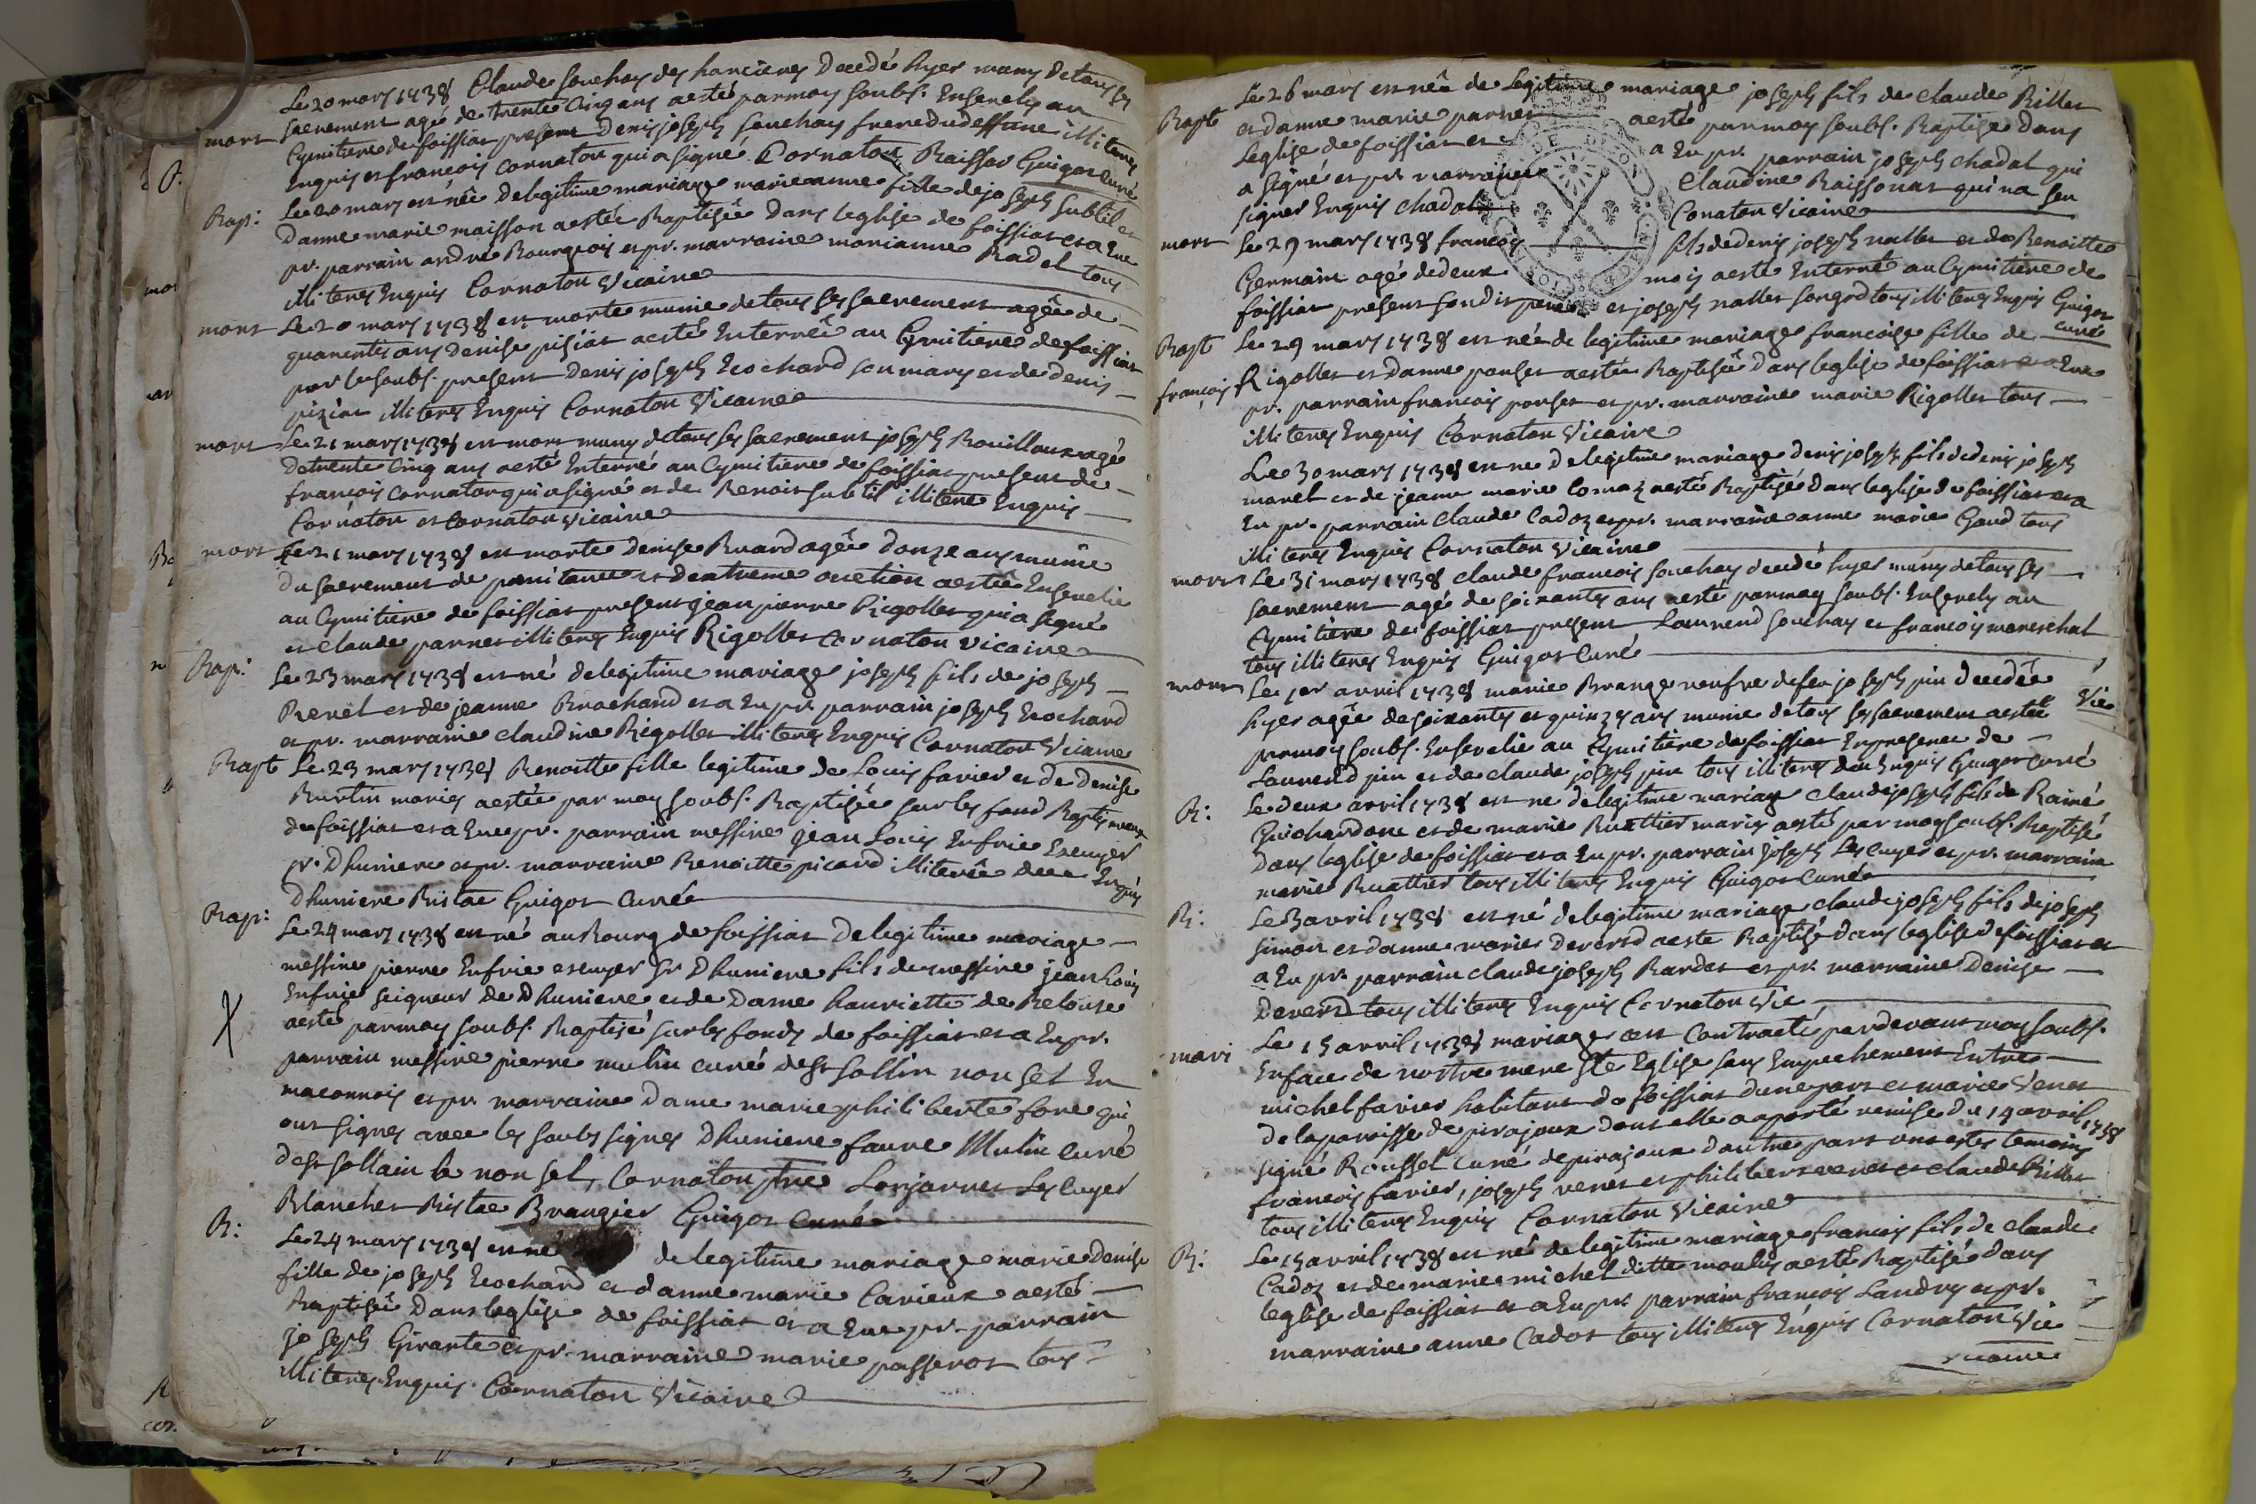 Le 20 mars 1738 Claude Souchay des hancienes decedé hyer muny de tous ses
mort sacrement agé de trente cinq ans aesté par moy soubs. Ensevely au
Cymitiere de foissiat present Denis joseph Souchay frere du deffunt illiteres
Enquis et françois Cornaton qui a signé. Cornaton Raissor Guigot curé
Bap: Le 20 mars est née de legitime mariage marie anne fille de joseph subtil et
danne marie maisson aestée Baptisée dans leglise de foissiat et a Eue
pr. parrain andré Bourgeois et pr. marraine marianne Radel tous
illiteres Enquis Cornaton Vicaire
mort Le 20 mars 1738 est morte munie de tous ses sacrement agée de
quarentes ans denise pisiat aesté Enterrée au Cymitiere de foissiat
par le soubs. present Denis joseph Cochard son mary et de denis
piziat illiteres Enquis Cornaton Vicaire
mort Le 21 mars 1738 est mort muny de tous ses sacrement joseph Rouilloux agé
de trente cinq ans aesté Enterré au Cymitiere de foissiat present de
françois Cornaton qui a signé et de Benoit subtil illitere Enquis
Cornaton et Cornaton Vicaire
mort Le 21 mars 1738 est morte denise Ruard agée donze ans munie
du sacrement de penitence et dextreme onction aestée Ensevelie
au Cymitiere de foissiat present jean pierre Rigollet qui a signé
et claude parnet illiteres Enquis Rigollet Cornaton vicaire
Bap: Le 23 mars 1738 est né de legitime mariage joseph fils de joseph
Prevel et de jeanne Brochard et a Eu pr. parrain joseph Cochard
et pr. marraine claudine Rigollet illiteres Enquis Cornaton Vicaire
Bapt Le 23 mars 1738 Benoitte fille legitime de Louis favier et de Denise
Burtin mariés aestée par moy soubs. Baptisée sur les fond Baptismeaux
de foissiat et a Eue pr. parrain messire jean Louis Enfrie Escuyer
sr. Dhuniere et pr. marraine Benoitte picard illiterée Enquis
Dhuniere Ristae Guigot curé
Bap: Le 24 mars 1738 est né au Bourg de foissiat de legitime mariage
messire pierre Enfrie escuyer sr Dhuniere fils de messire jean Louis
Enfrie seigneur de Dhuniere et de Dame hanriette de Belouse
X aesté par moy soubs. Baptisé sur les fonds de foissiat et a Eu pr.
parrain messire pierre mulin curé de st sollin non sel En
maconnois et pr. marraine Dame marie philiberte fore qui
ont signes avec les soubs signes Dhuniere faure Mulin curé
de st sollain le non sel, Cornaton ptre Lorjarnet Lescuyer
Blanchet Ristae Brangier Guigot curé
B: Le 24 mars 1738 est né de legitime mariage marie denise
fille de joseph Cochard et danne marie Carieux aesté
Baptisée dans leglise de foissiat et a Eue pr. parrain
joseph Girante et pr. marraine marie passerot tous
illiteres Enquis. Cornaton Vicaire
Le 26 mars est née de legitime mariage joseph fils de claude Billet
Bapt et danne marie parnet aesté par moy soubs. Baptisé dans
Leglise de foissiat et a Eu pr. parrain joseph chadal qui
a signé et pr marraine claudine Raissonat qui na seu
signer Enquis chadal Cornaton Vicaire
mort Le 29 mars 1738 francois fils de denis joseph nallet et de Benoitte
Germain agé de deux mois aesté Enterré au Cymitiere de
foissiat present son dit pere et joseph nallet son grd tous illiteres Enquis Guigot
curé
Bapt Le 29 mars 1738 est née de legitime mariage francoise fille de
françois Rigollet et danne ponset aestée Baptisée dans leglise de foissiat et a Eue
pr. parrain francois ponset et pr. marraine marie Rigollet tous
illiteres Enquis Cornaton Vicaire
Le 30 mars 1738 est ne de legitime mariage denis joseph fils de denis joseph
morel et de jeanne marie Comaz aesté Baptisé dans leglise de foissiat et a
Eu pr. parrain claude Cadoz et pr. marraine anne marie Gand tous
illiteres Enquis Cornaton Vicaire
mort Le 31 mars 1738 claude francois Souchay decedé hyer muny de tous ses
sacrement agé de soixantes ans aesté par moy soubs. Ensevely au
Cymitiere de foissiat present Laurend Souchay et francois mareschal
tous illiteres Enquis Guigot curé
mort Le 1er avril 1738 marie Brange veufve de feu joseph pin decedée
hyer agée de soixantes et quinzes ans munie de tous ses sacrement aestée Vic
par moy soubs. Ensevelie au Cymitiere de foissiat En presence de
Laurend pin et de claude joseph pin tous illiteres Enquis Guigot curé
B: Le deux avril 1738 est ne de legitime mariage claude joseph fils de Rainé
Guichardone et de marie Ruattier mariés aesté par moy soubs. Baptisé
dans leglise de foissiat et a Eu pr. parrain joseph Lescuyer et pr. marraine
marie Ruattier tous illiteres Enquis Guigot curé
B: Le 3 avril 1738 est né de legitime mariage claude joseph fils de joseph
simon et danne marie Deverd aesté Baptisé dans leglise de foissiat et
a Eu pr. parrain claude joseph Bardet et pr. marraine Denise
Deverd tous illiteres Enquis Cornaton Vic
mari Le 15 avril 1738 mariage a est Contracté par devant moy soubs.
En face de nostre mere Ste Eglise sans Empechement Entre
michel favier habitant de foissiat dune part et marie Venet
de la paroisse de pirajoux dont elle a aporté remise du 14 avril 1738
signé Roussel curé de pirajoux dautre part ont estés temoins
francois favier, joseph venet et philibert venet et claude Billet
tous illiteres Enquis Cornaton Vicaire
B: Le 15 avril 1738 est né de legitime mariage francois fils de claude
Cadoz et de marie michel ditte moulin aesté Baptisé dans
leglise de foissiat et a Eu pr. parrain francois Landry et pr.
marraine anne Cadot tous illiteres Enquis Cornaton Vic
vicaire